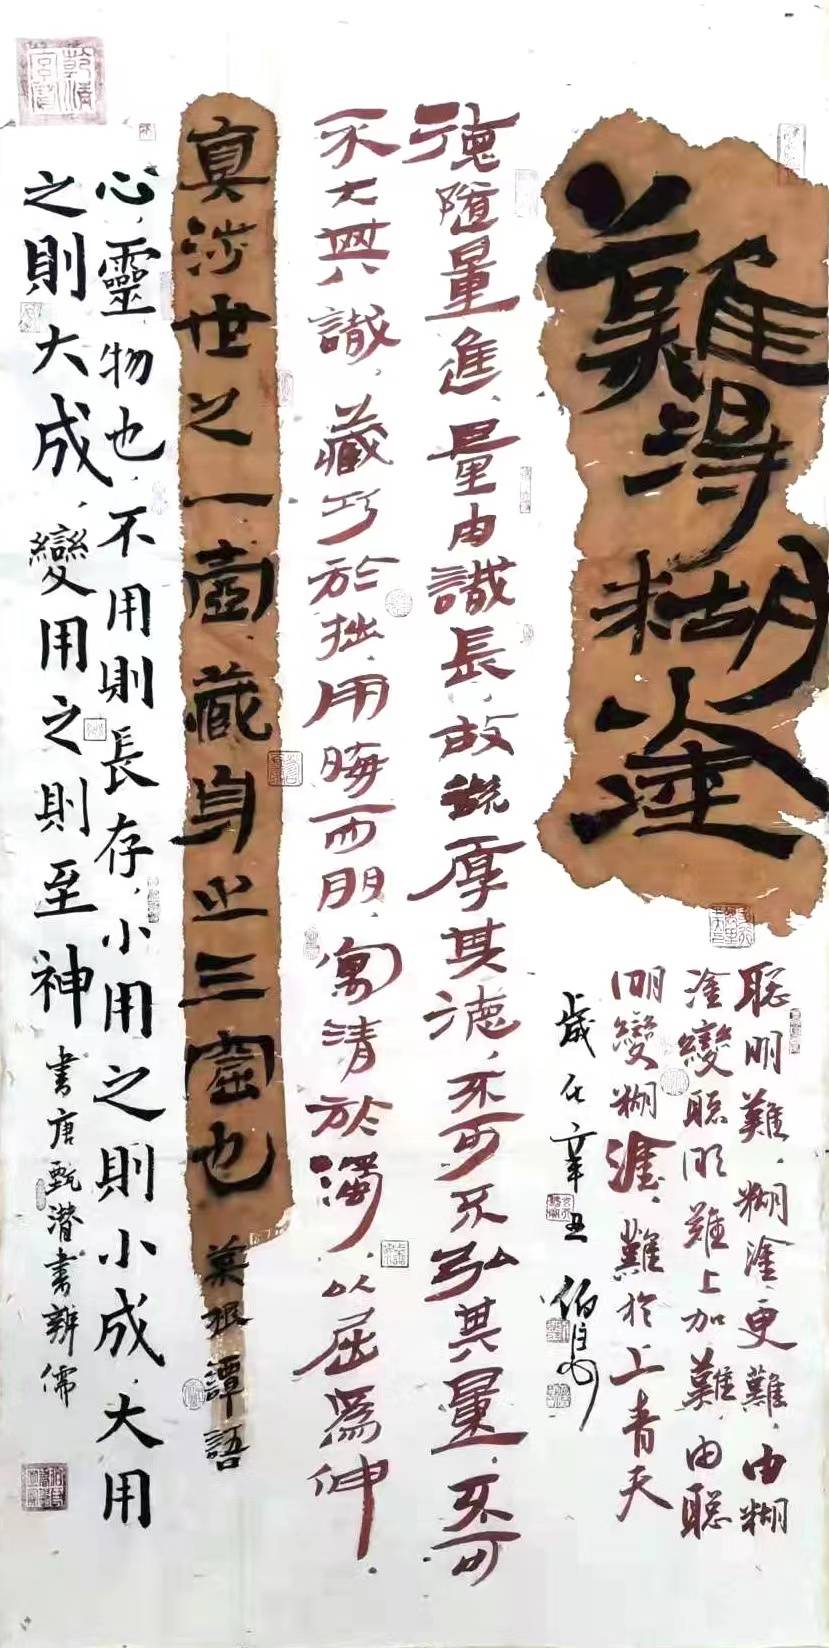 難得糊塗
聰明難，糊塗更難，由糊
塗變聰明難上加難，由聰
明變糊塗，難於上青天
歲在辛丑
德隨量進，量由識長，故說厚其德，不可不弘其量，不可
不大其識，藏巧於拙，用晦而明，寓清於濁，以屈為伸，
真涉世之一壺，藏身之三窟也 菜根譚語
心，靈物也，不用則長存，小用之則小成，大用
之則大成，變用之則至神 書唐甄潛書辨儒